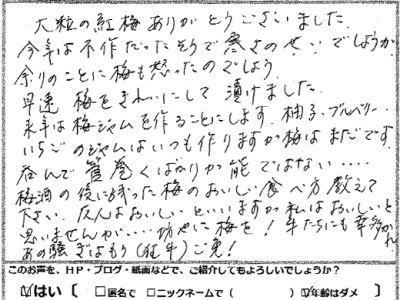 大粒の紅梅ありがとうございました。
今年は不作だったそうで寒さのせいでしょうか
余りのことに梅も怒ったのでしょう。
早速 梅をきれいにして漬けました。
来年は梅ジャムを作ることにします。柚子、ブルベリー、
いちごのジャムはいつも作りますが梅はまだです。
呑んで管巻くばかりが能ではない....
梅酒の後に残った梅のおいしい食べ方教えて
下さい。友人はおいしいといいますが私はおいしいと
思いませんが.... 坊やに梅を! 牛たちにも幸多かれ
あの騒ぎはもう(狂牛)ご免!
このお声を、HP・ブログ・紙面などで、ご紹介してもよろしいでしょうか?
☑はい【 □匿名で □ニックネームで( ) ☑年齢はダメ 】